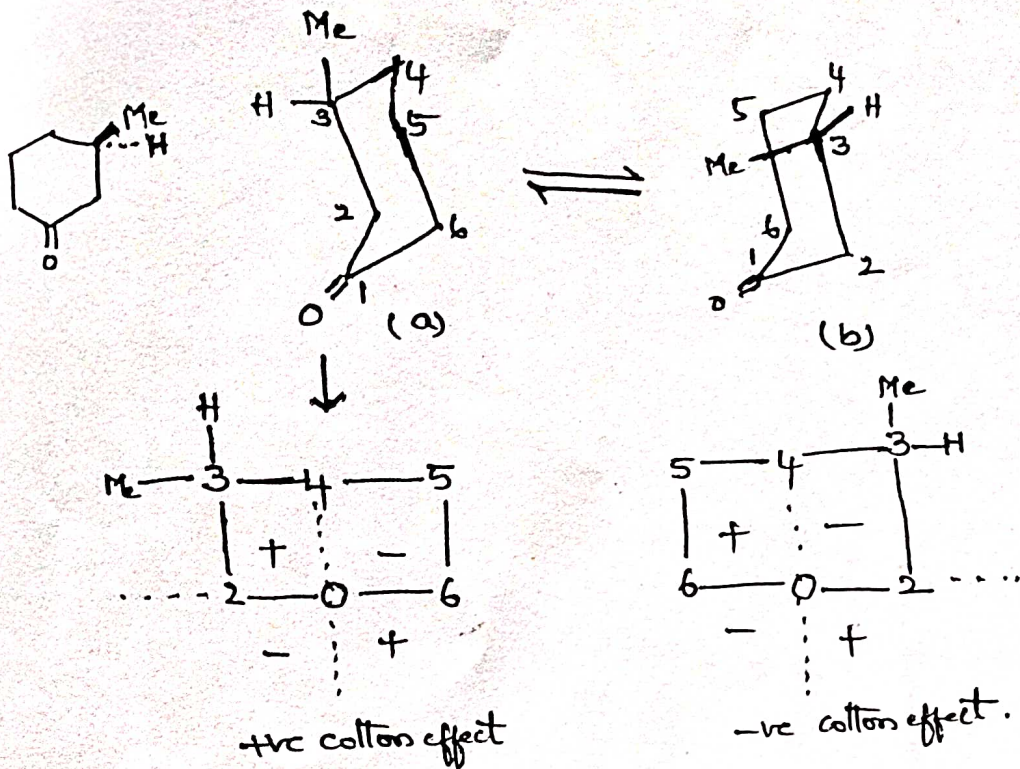 Me
H
O
Me
H
3
4
5
2
6
1
O
(a)
4
5
H
Me
3
6
1
2
O
(b)
H
Me 3 4 5
+ -
2 O 6
- +
+ve cotton effect
Me
5 4 3 H
+ -
6 O 2
- +
-ve cotton effect.